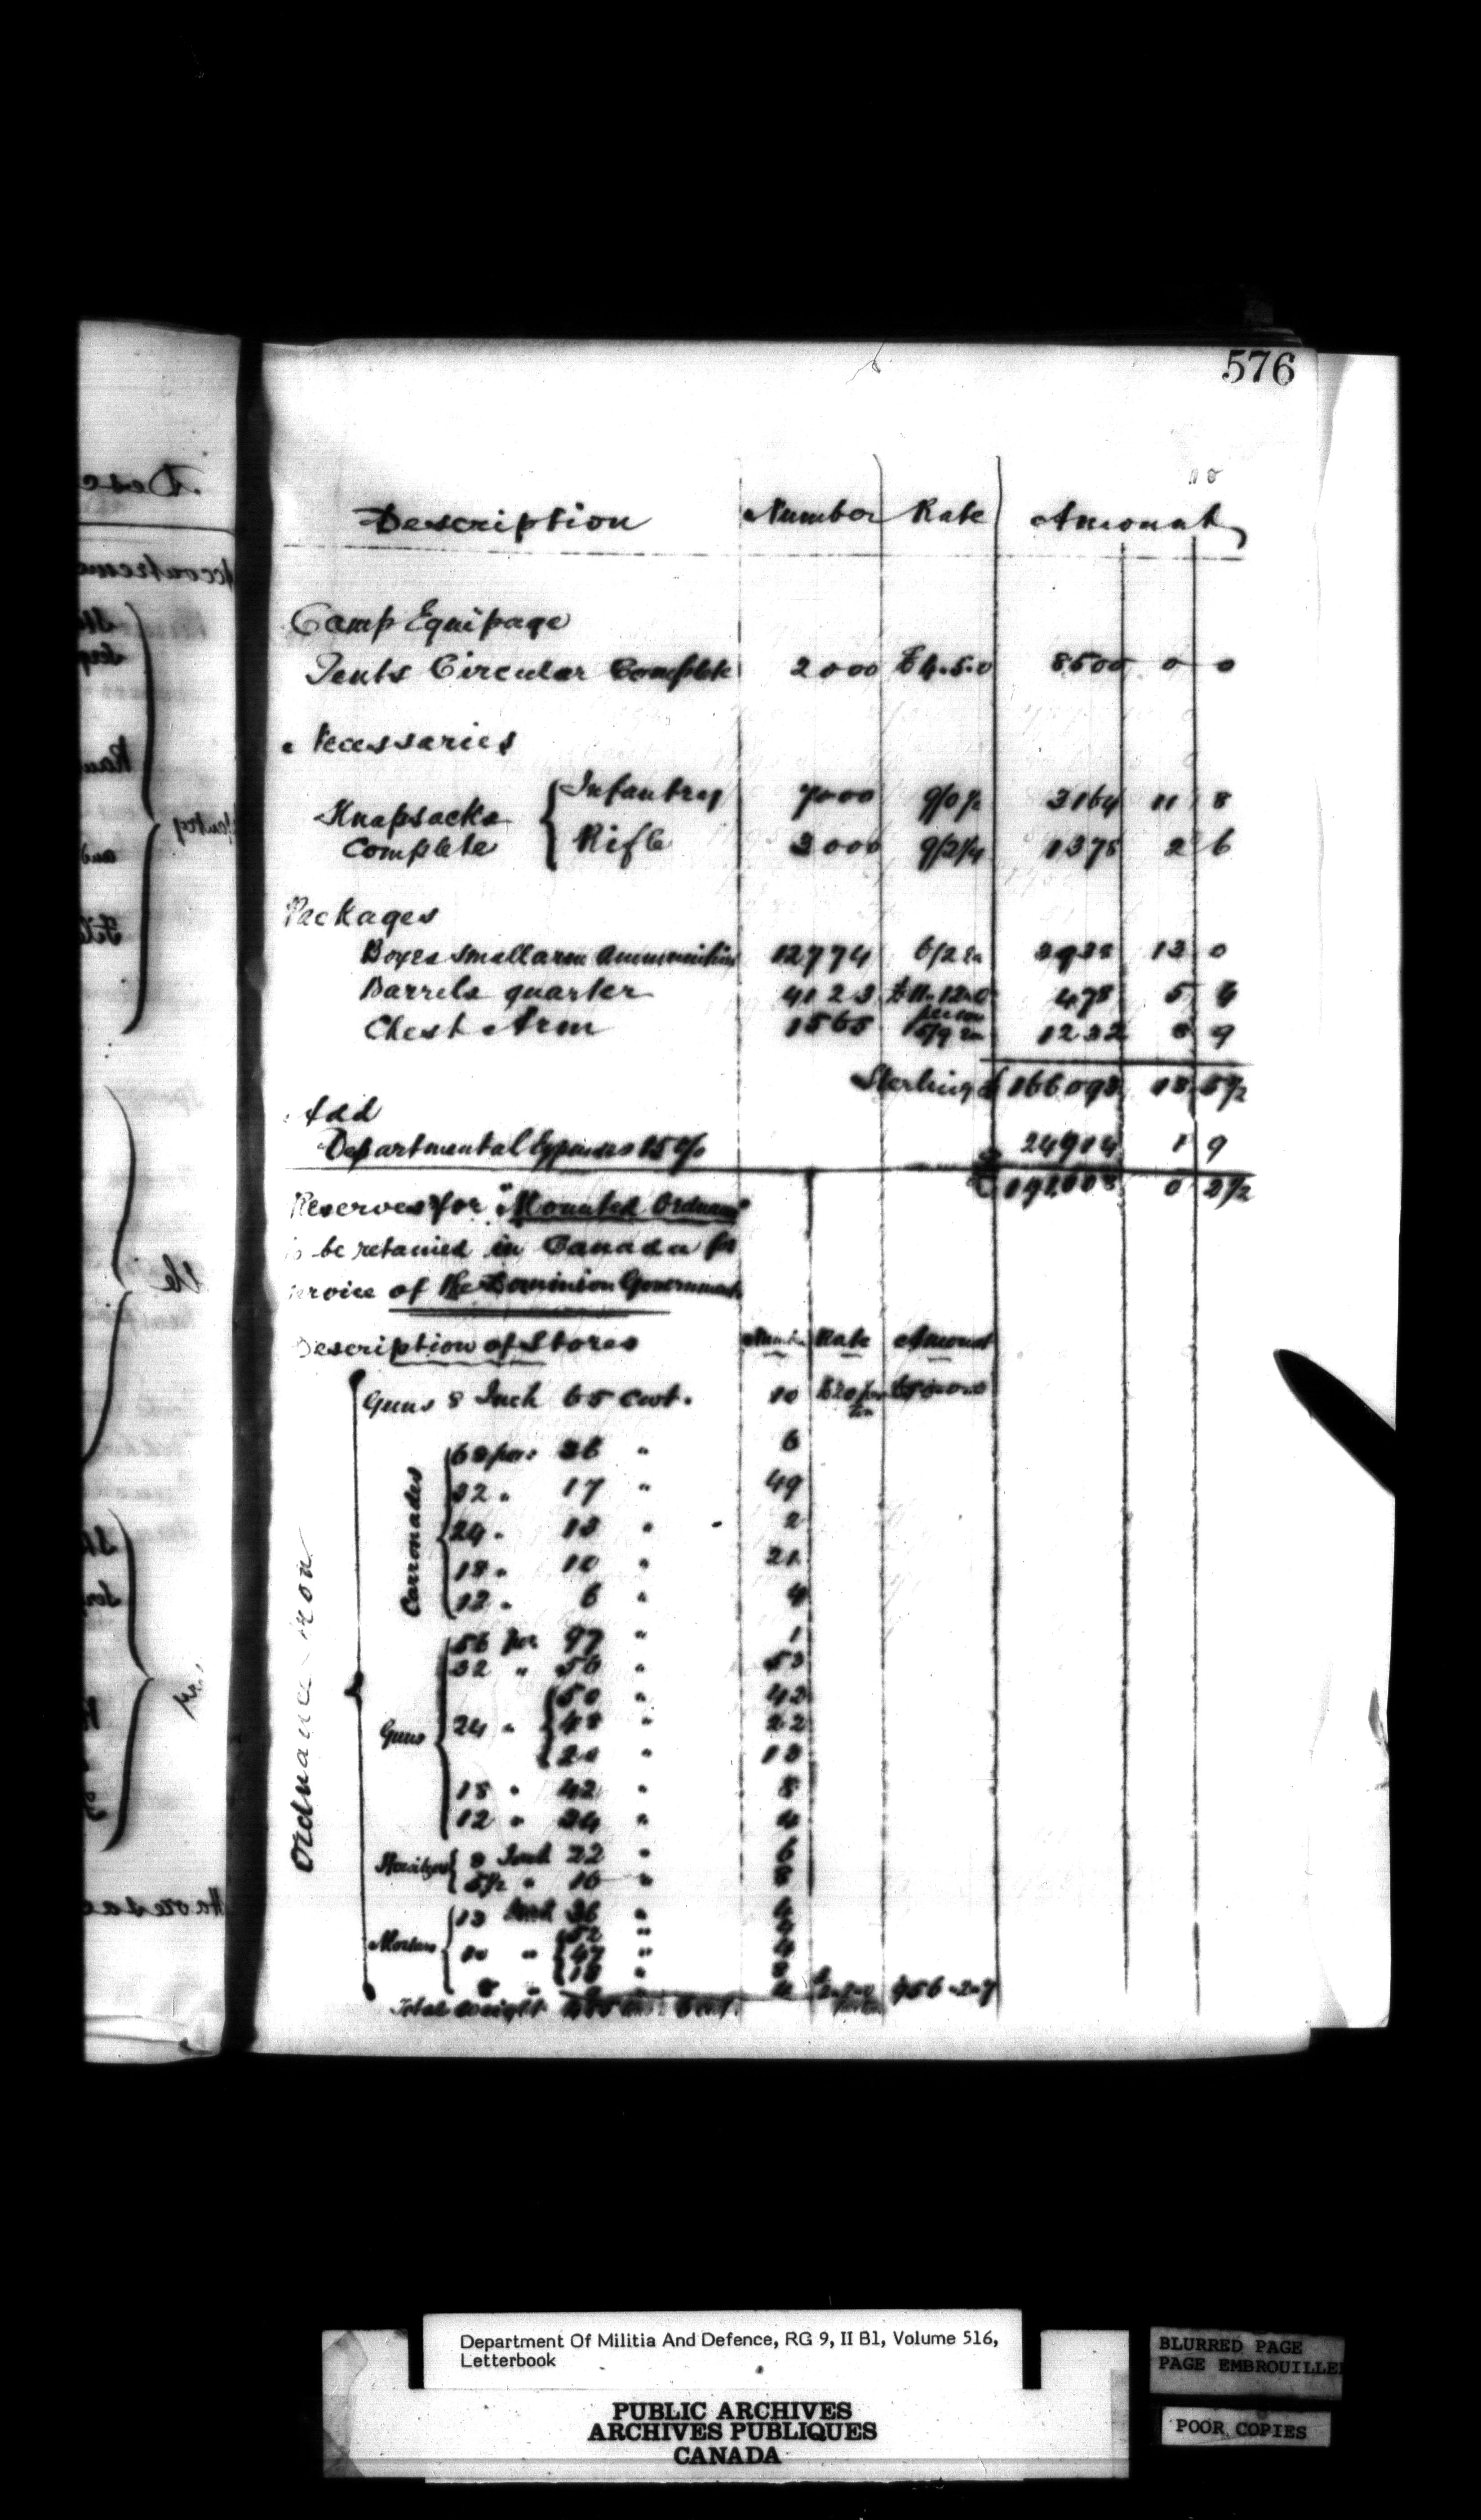 576
Description Number Rate Amount
Camp Equipage
Tents Circular Complete 2000 £4.5.0 8500 0 0
Necessaries
Knapsacks Complete { Infantry 7000 9/0½ 3164 11 8
Rifle 3000 9/2¼ 1378 2 6
Packages
Boxes small arm ammunition 12774 6/2 ea 3938 13 0
Barrels quarter 4123 £11.12.0 per 478 5 4
Chest Arm 1565 15/9 ea 1232 8 9
Sterling £ 166093 18 5½
Add
Departmental Expenses 15 % 24914 1 9
£ 191008 0 2½
Reserves for "Mounted Ordnance"
be retained in Canada for
service of the Dominion Government
Description of Stores Number Rate Amount
Guns 8 Inch 65 Cwt. 10 £20 per ton
Ordnance iron
Carronades
68 pr. 36 " 6
32 " 17 " 49
24 " 13 " 2
18 " 10 " 21
12 " 6 " 4
Guns
56 pr 97 " 1
32 " 56 " 53
24 " { 50 " 42
48 " 22
20 " 13
18 " 42 " 8
12 " 34 " 4
Howitzers { 8 Inch 22 " 6
5½ " 10 " 8
Mortars { 13 Inch 36 "
10 " { 52 "
47 " 4
18 "
8 "
Total Weight
Department Of Militia And Defence, RG 9, II B1, Volume 516,
Letterbook
PUBLIC ARCHIVES
ARCHIVES PUBLIQUES
CANADA
BLURRED PAGE
PAGE EMBROUILLE
POOR COPIES